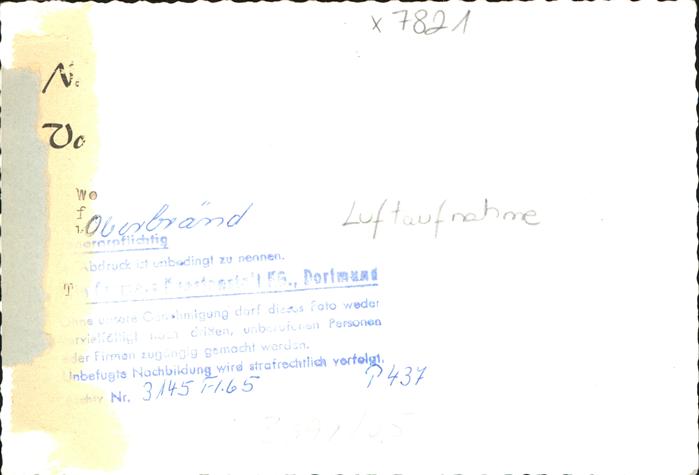 x 7821
N.
Vo
Wo
f
Oberbränd
Luftaufnahme
orarpflichtig
bdruck ist unbedingt zu nennen.
KG., Dortmund
Ohne unsere Genehmigung darf dieses Foto weder
ervielfältigt noch dritten, unberufenen Personen
oder Firmen zugängig gemacht werden.
Unbefugte Nachbildung wird strafrechtlich verfolgt.
Archiv Nr. 3145 I-1.65
P 437